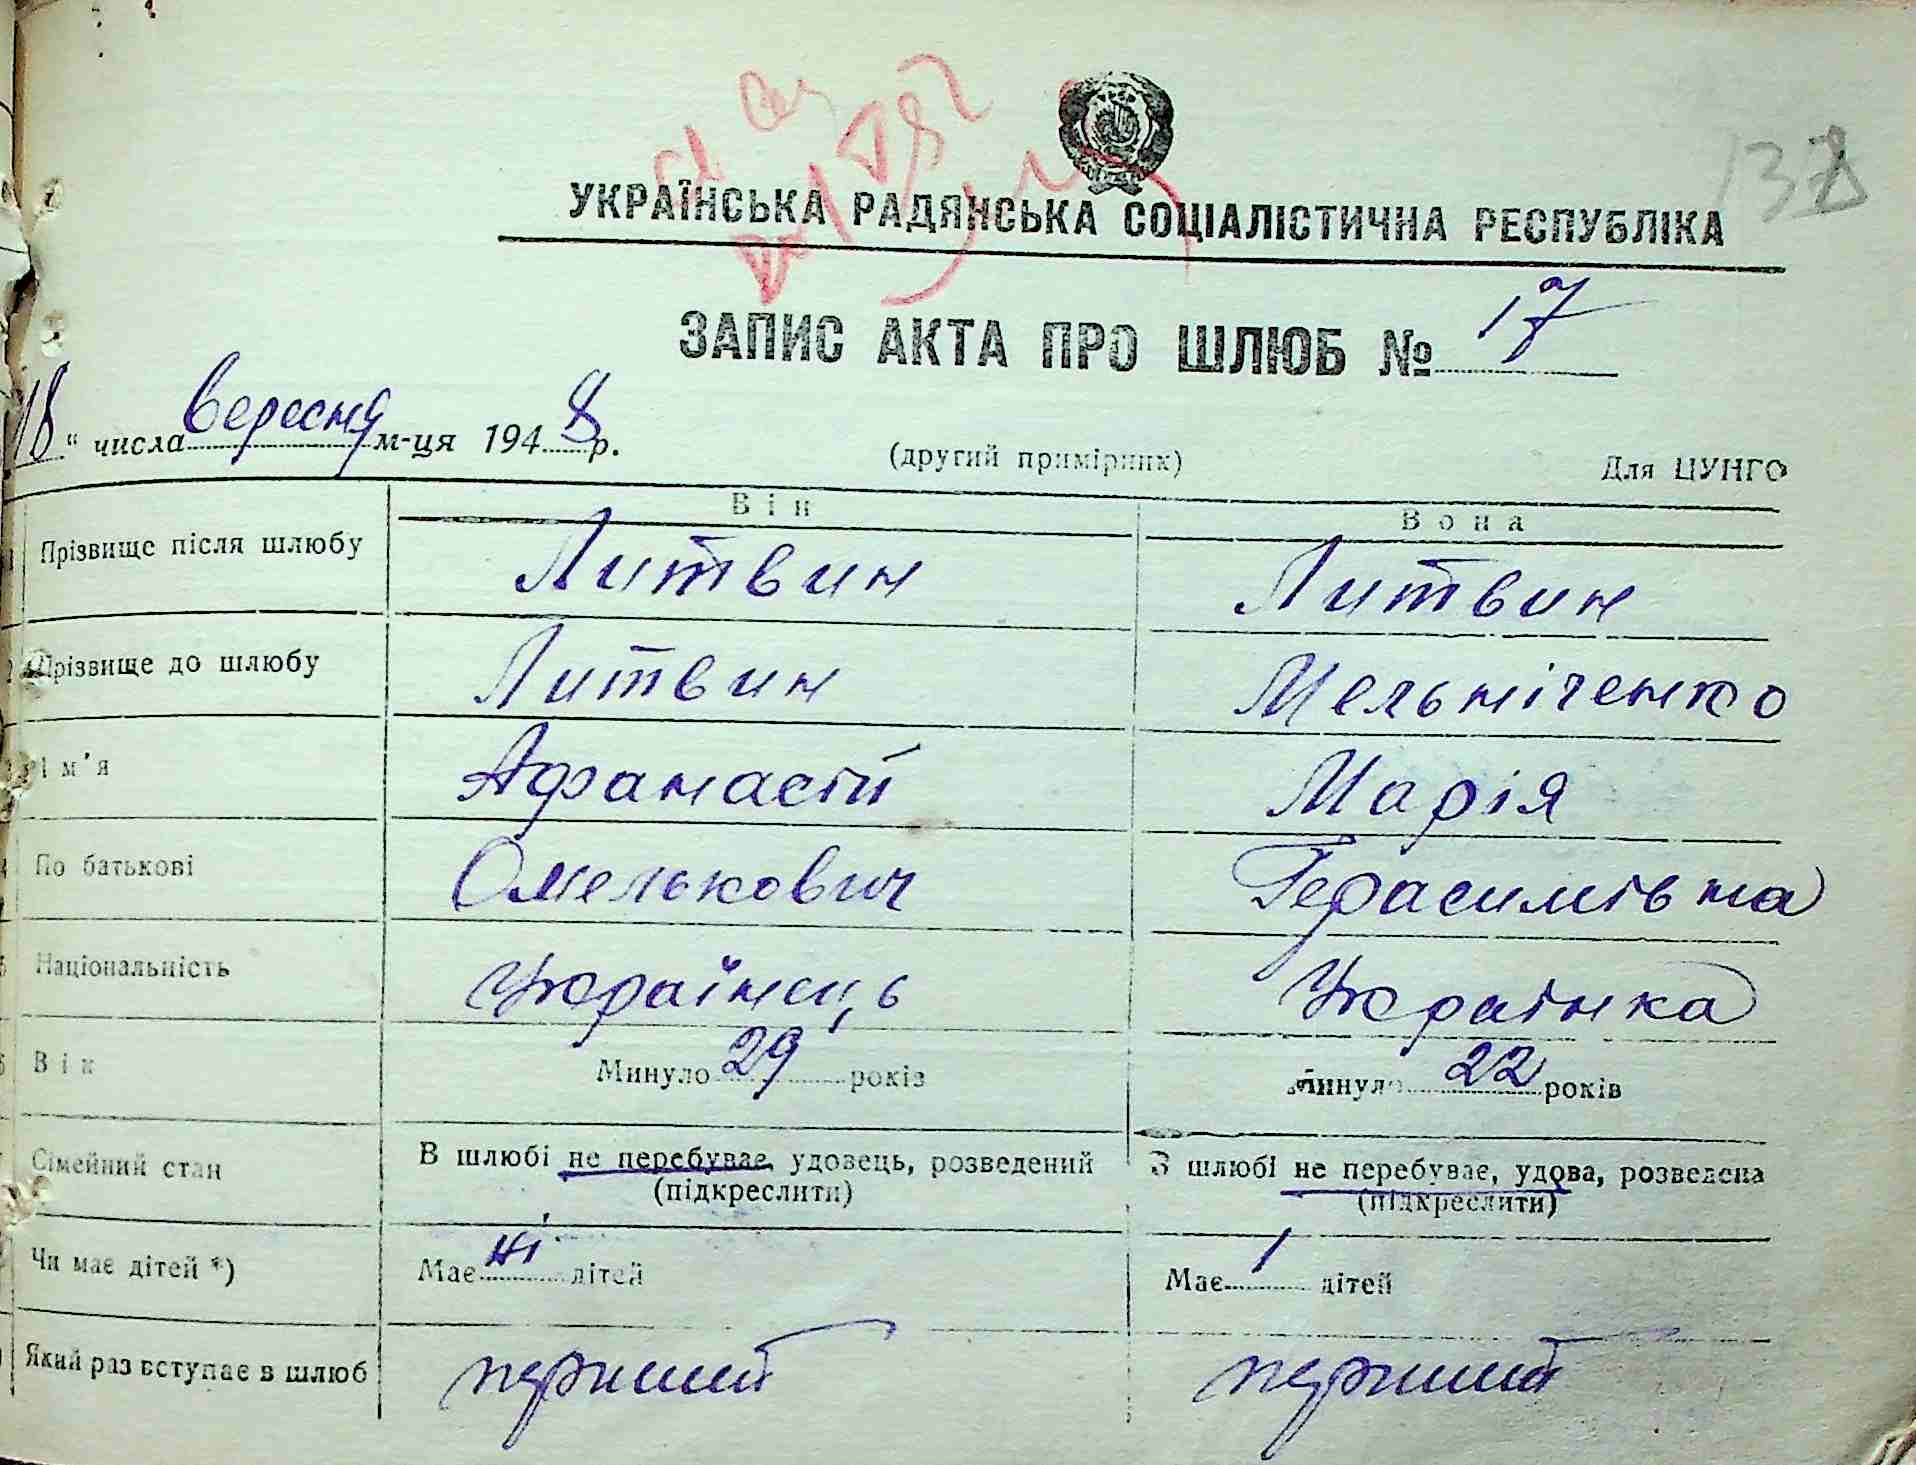 137
УКРАЇНСЬКА РАДЯНСЬКА СОЦІАЛІСТИЧНА РЕСПУБЛІКА
ЗАПИС АКТА ПРО ШЛЮБ № 17
18 " числа вересня м-ця 1948 р.
(другий примірник) Для ЦУНГО
Він Вона
1 Прізвище після шлюбу Литвин Литвин
2 Прізвище до шлюбу Литвин Мельніченко
3 Ім'я Афанасій Марія
4 По батькові Омелькович Герасимівна
5 Національність Українець Українка
6 Вік Минуло 29 років Минуло 22 років
7 Сімейний стан В шлюбі не перебуває, удовець, розведений (підкреслити) В шлюбі не перебуває, удова, розведена (підкреслити)
Чи має дітей *) Має ні дітей Має 1 дітей
Який раз вступає в шлюб перший перший